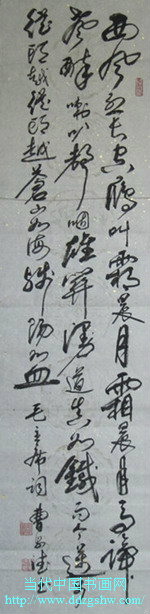 西风烈长空雁叫霜晨月霜晨月马蹄
声碎喇叭声咽雄关漫道真如铁而今迈步
从头越从头越苍山如海残阳如血 毛主席词
当代中国书画网
www.ddzgshw.com